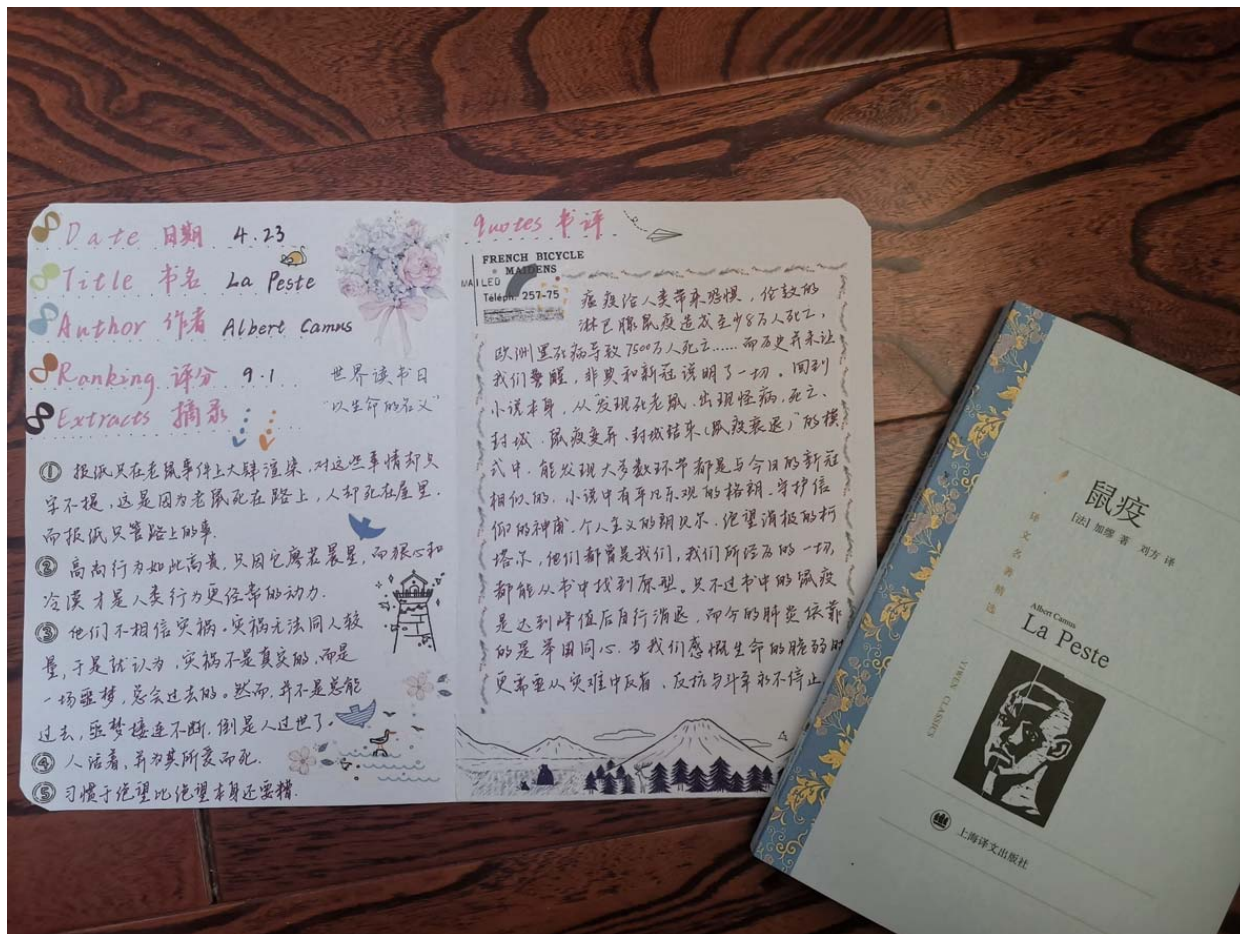 Date 日期 4.23
Title 书名 La Peste
Author 作者 Albert Camus
Ranking 评分 9.1
世界读书日
Extracts 摘录
"以生命的名义"
① 报纸只在老鼠事件上大肆渲染,对这些事情却只
字不提,这是因为老鼠死在路上,人却死在屋里.
而报纸只管路上的事.
② 高尚行为如此高贵,只因它廖若晨星,而狠心和
冷漠才是人类行为更经常的动力.
③ 他们不相信灾祸.灾祸无法同人较
量,于是就认为,灾祸不是真实的,而是
一场噩梦,总会过去的。然而,并不是总能
过去,噩梦接连不断,倒是人过世了。
④ 人活着,并为其所爱而死.
⑤ 习惯于绝望比绝望本身还要糟.
quotes 书评
FRENCH BICYCLE
MAIDENS
MAILED
Téléph. 257-75
瘟疫给人类带来恐惧,伦敦的
淋巴腺鼠疫造成至少8万人死亡,
欧洲黑死病导致7500万人死亡……而历史并未让
我们警醒,非典和新冠说明了一切。回到
小说本身,从"发现死老鼠、出现怪病、死亡、
封城、鼠疫变异、封城结束(鼠疫衰退)"的模
式中,能发现大多数环节都是与今日的新冠
相似的.小说中有平凡乐观的格朗.守护信
仰的神甫.个人主义的朗贝尔,绝望消极的柯
塔尔,他们都曾是我们,我们所经历的一切,
都能从书中找到原型。只不过书中的鼠疫
是达到峰值后自行消退,而今的肺炎依靠
的是举国同心.当我们感慨生命的脆弱时
更需要从灾难中反省、反抗与斗争永不停止
鼠疫
[法] 加缪 著 刘方 译
译文名著精选
Albert Camus
La Peste
YIWEN CLASSICS
上海译文出版社